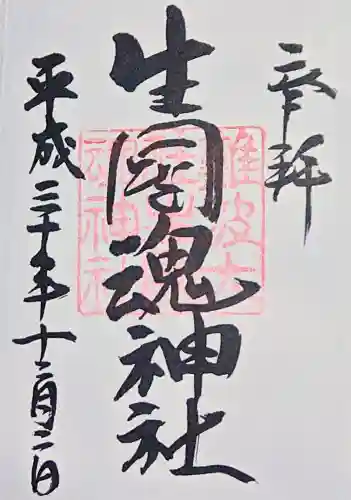 奉拝
生國魂神社
平成二十年十二月二日